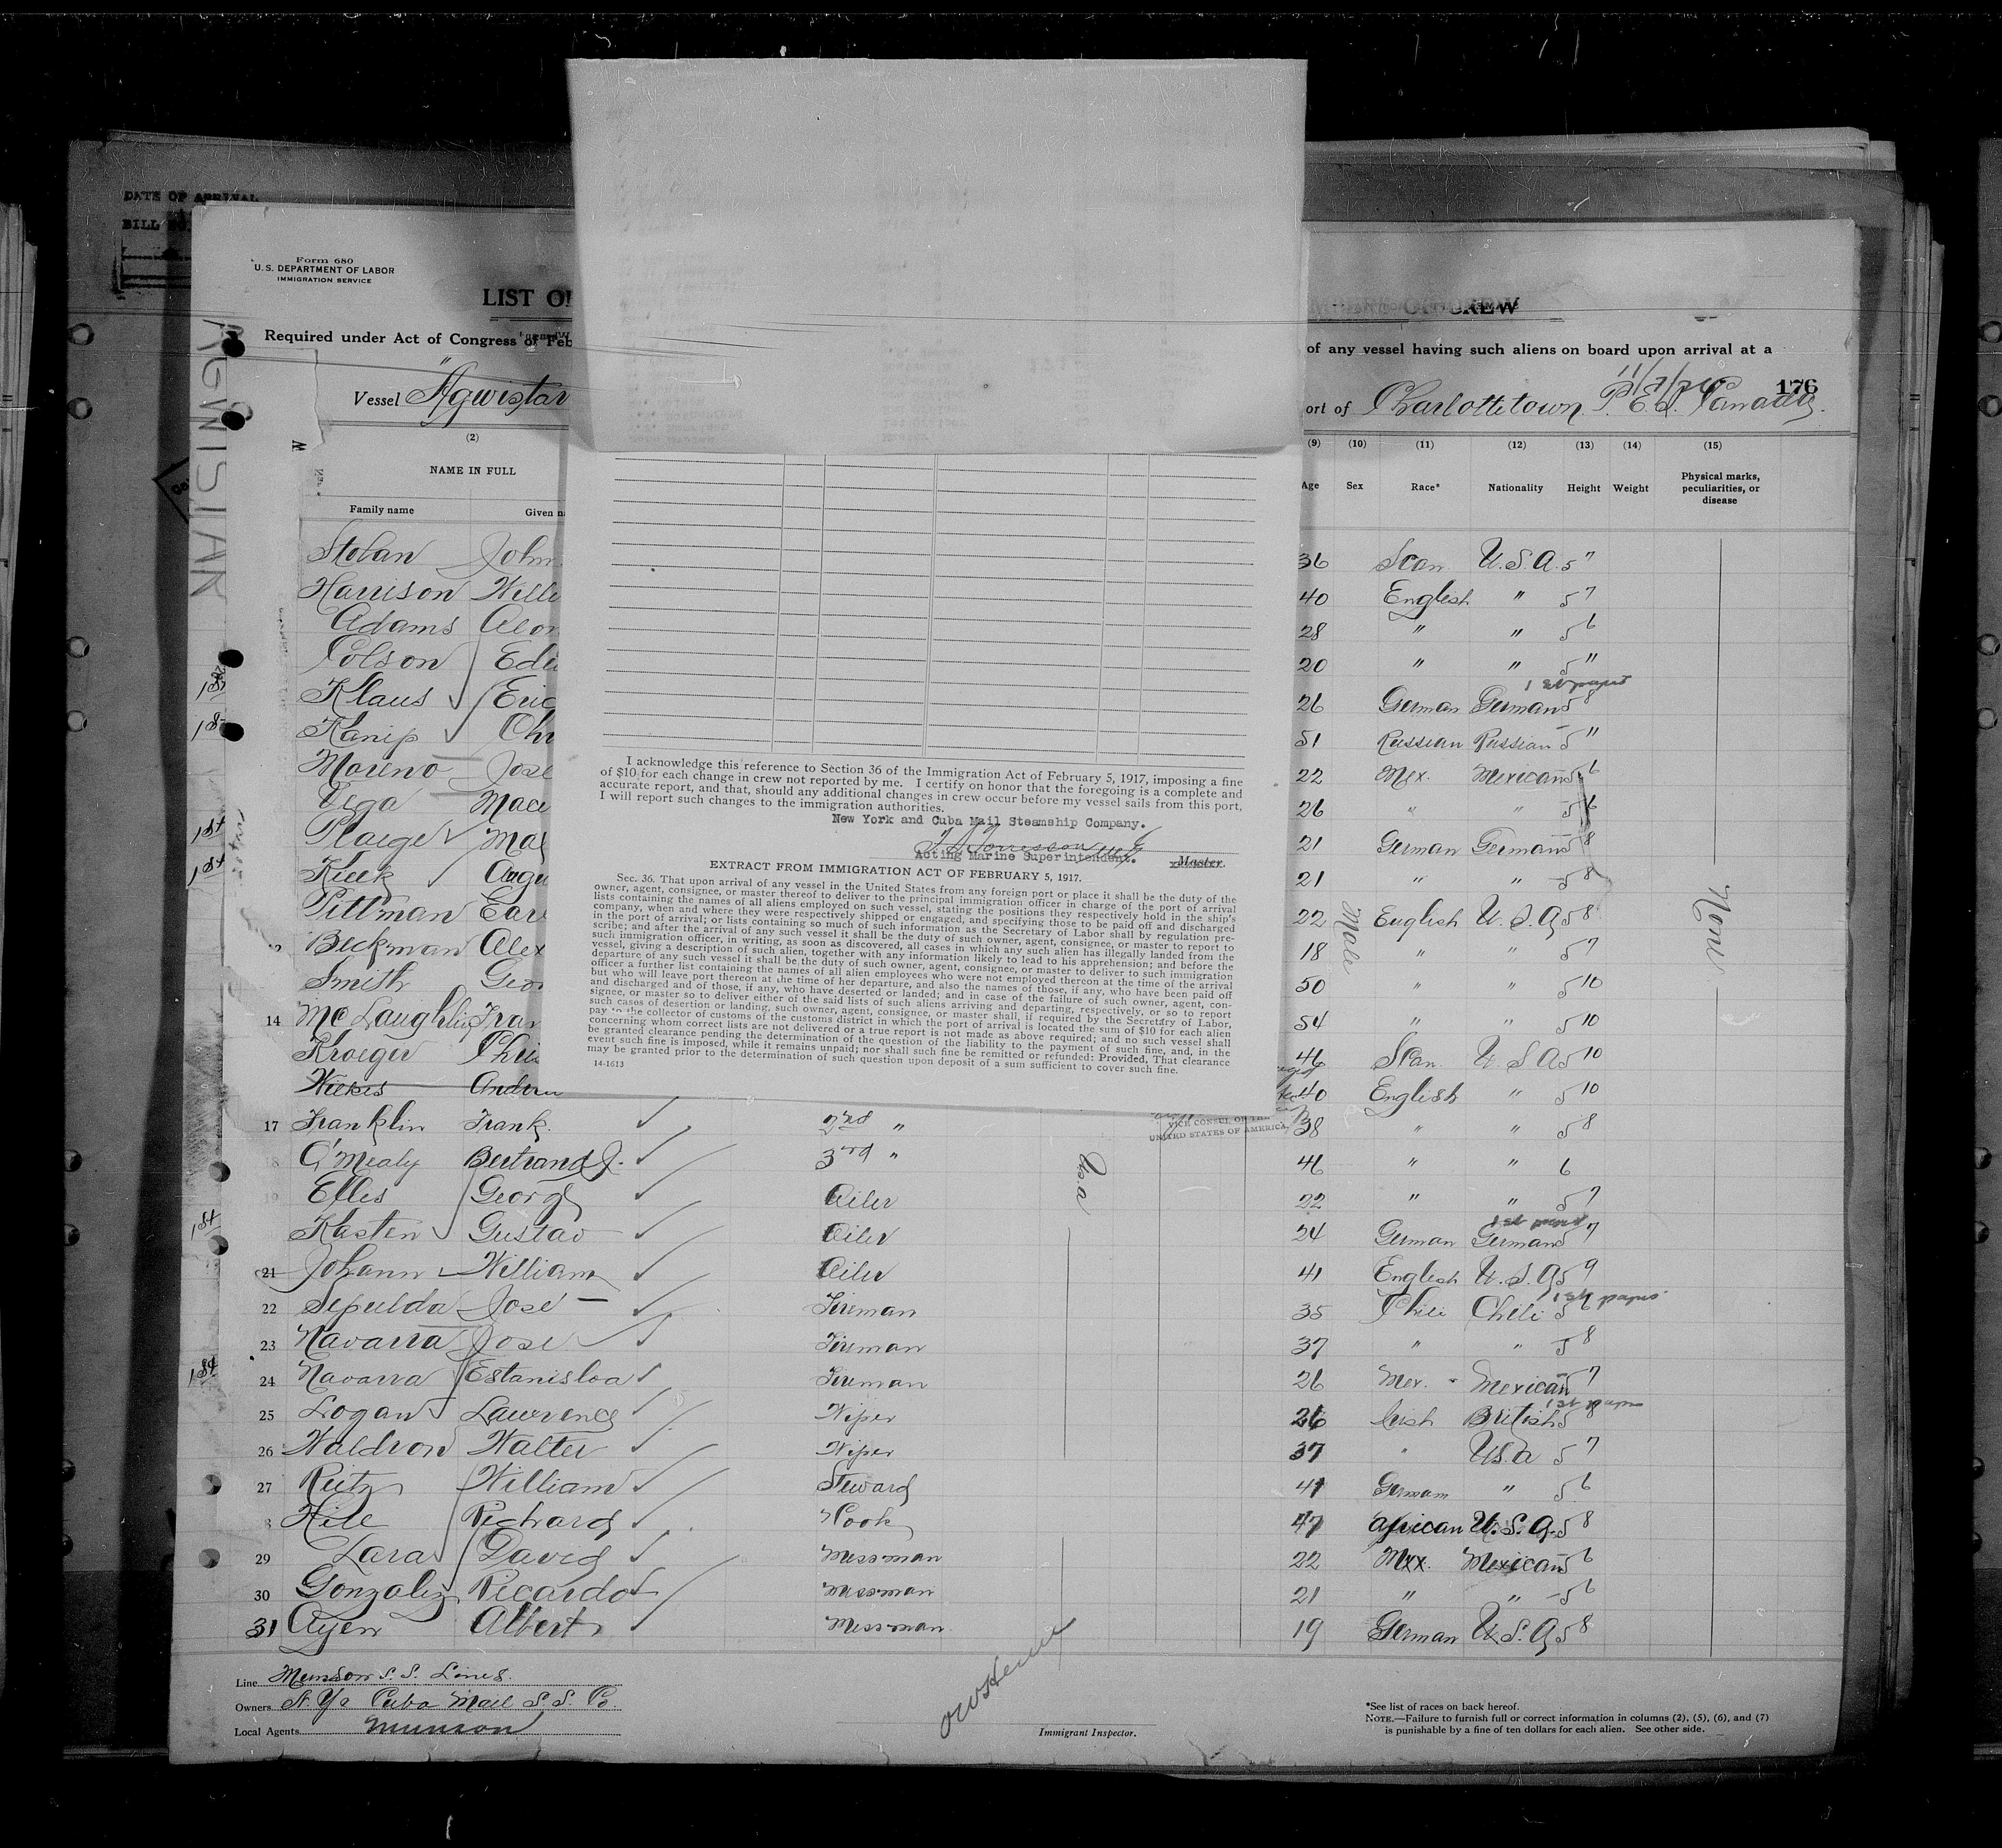 DATE OF ARRIVAL
Form 680
U.S. DEPARTMENT OF LABOR
IMMIGRATION SERVICE
LIST O
CREW
Required under Act of Congress of Feb
of any vessel having such aliens on board upon arrival at a
AGWISTAR
Vessel "Agwistar
ort of Charlottetown P.E.I. Canada. 176
(2) (9) (10) (11) (12) (13) (14) (15)
NAME IN FULL
Family name Given n
Age Sex Race* Nationality Height Weight Physical marks, peculiarities, or disease
Stoban John 36 Scan. U.S.A. 5 7
Harrison Willi 40 English " 5 7
Adams 28 " " 5 6
Colson 20 " " 5 11
1st papers
Klaus Eric 26 German German 5 8
Kanip Chr 51 Russian Russian 5 11
Moreno Jose 22 Mex. Mexican 5 6
Vega Mace 26 " " 5 6
1st Plaeger Max 21 German German 5 8
1st Kieck Augu 21 " " 5 8
Pittman Earl 22 English U.S.A 5 8
Beckman Alex 18 " " 5 7
Smith Geo 50 " " 5 10
14 McLaughlin Fran 54 " " 5 10
Kroeger Chri 46 Scan. U S A 5 10
Wilkes Andrew 40 English " 5 10
17 Franklin Frank. 2nd " 38 " " 5 8
O'Mealy Bertrand J. 3rd " 46 " " 6
19 Ellis George Oiler 22 " " 5 7
1st Kasten Gustav Oiler 24 German German 5 7
21 Johann William Oiler 41 English U.S.A 5 9
1st papers
22 Sepulda Jose Fireman 35 Chili Chili 5 6
23 Navarra Jose Fireman 37 " " 5 8
1st 24 Navarra Estanisloa Fireman 26 Mex. Mexican 5 7
1st papers
25 Logan Lawrence Wiper 26 Irish British 5 8
26 Waldron Walter Wiper 37 " U.S.A 5 7
27 Reitz William Steward 41 German " 5 6
Hill Richard Cook 47 African U.S.A. 5 8
29 Lara David Messman 22 Mex. Mexican 5 6
30 Gonzalez Ricardo Messman 21 " " 5 6
31 Ayen Albert Messman 19 German U.S.A 5 8
Male
None
U.S.A
VICE CONSUL OF THE
UNITED STATES OF AMERICA
I acknowledge this reference to Section 36 of the Immigration Act of February 5, 1917, imposing a fine
of $10 for each change in crew not reported by me. I certify on honor that the foregoing is a complete and
accurate report, and that, should any additional changes in crew occur before my vessel sails from this port,
I will report such changes to the immigration authorities.
New York and Cuba Mail Steamship Company.
Acting Marine Superintendent. Master.
EXTRACT FROM IMMIGRATION ACT OF FEBRUARY 5, 1917.
Sec. 36. That upon arrival of any vessel in the United States from any foreign port or place it shall be the duty of the
owner, agent, consignee, or master thereof to deliver to the principal immigration officer in charge of the port of arrival
lists containing the names of all aliens employed on such vessel, stating the positions they respectively hold in the ship's
company, when and where they were respectively shipped or engaged, and specifying those to be paid off and discharged
in the port of arrival; or lists containing so much of such information as the Secretary of Labor shall by regulation pre-
scribe; and after the arrival of any such vessel it shall be the duty of such owner, agent, consignee, or master to report to
such immigration officer, in writing, as soon as discovered, all cases in which any such alien has illegally landed from the
vessel, giving a description of such alien, together with any information likely to lead to his apprehension; and before the
departure of any such vessel it shall be the duty of such owner, agent, consignee, or master to deliver to such immigration
officer a further list containing the names of all alien employees who were not employed thereon at the time of the arrival
but who will leave port thereon at the time of her departure, and also the names of those, if any, who have been paid off
and discharged and of those, if any, who have deserted or landed; and in case of the failure of such owner, agent, con-
signee, or master so to deliver either of the said lists of such aliens arriving and departing, respectively, or so to report
such cases of desertion or landing, such owner, agent, consignee, or master shall, if required by the Secretary of Labor,
pay to the collector of customs of the customs district in which the port of arrival is located the sum of $10 for each alien
concerning whom correct lists are not delivered or a true report is not made as above required; and no such vessel shall
be granted clearance pending the determination of the question of the liability to the payment of such fine, and, in the
event such fine is imposed, while it remains unpaid; nor shall such fine be remitted or refunded: Provided, That clearance
may be granted prior to the determination of such question upon deposit of a sum sufficient to cover such fine.
14-1613
Line Munson S.S. Lines.
Owners N.Y. & Cuba Mail S.S. Co.
Local Agents Munson
Immigrant Inspector.
*See list of races on back hereof.
NOTE.—Failure to furnish full or correct information in columns (2), (5), (6), and (7)
is punishable by a fine of ten dollars for each alien. See other side.